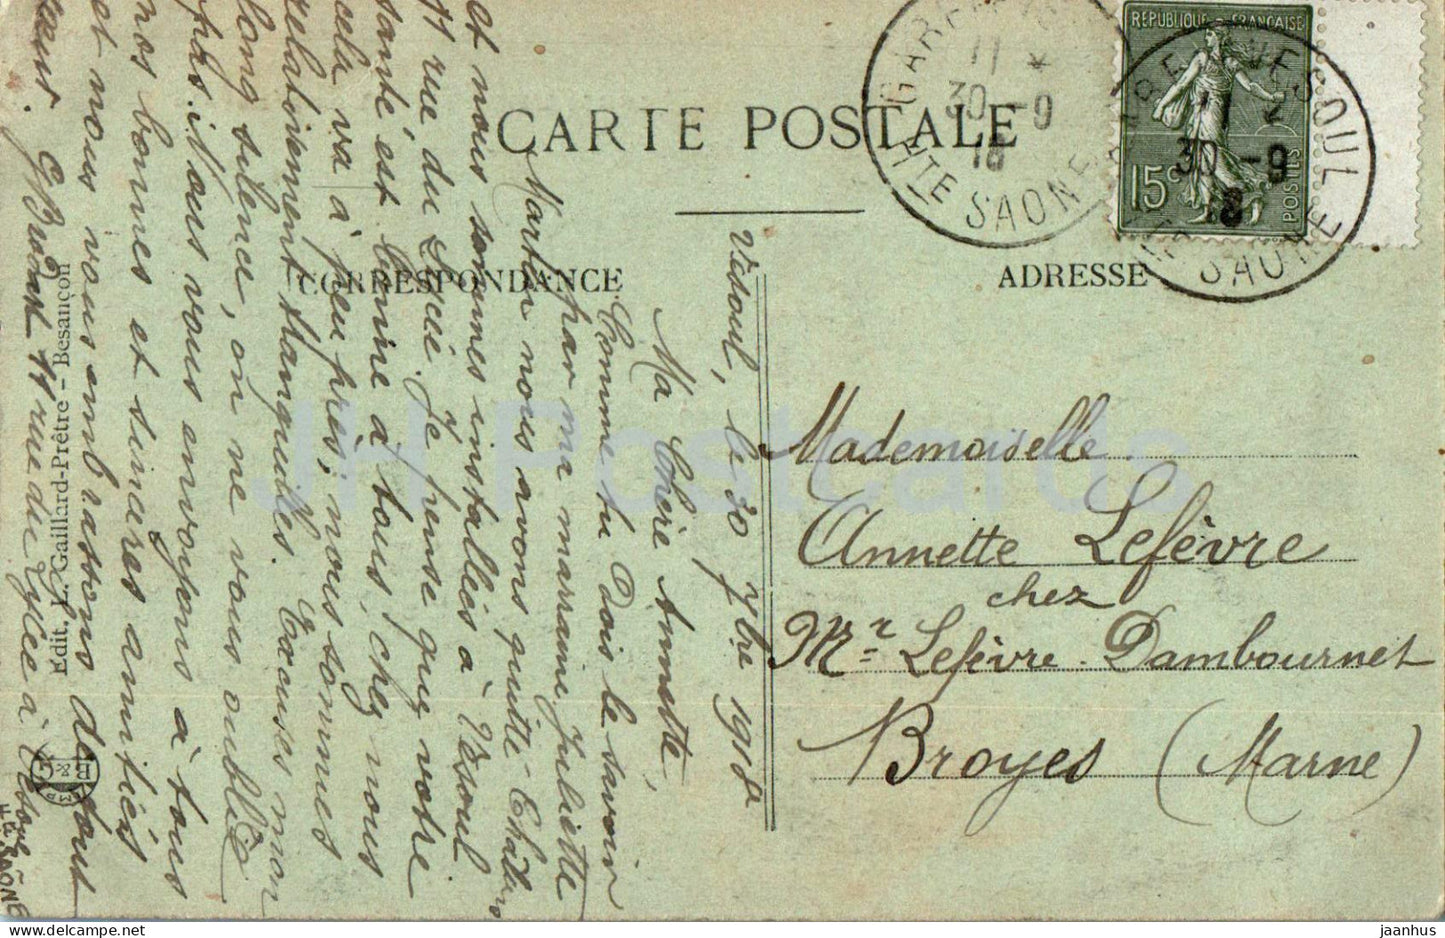 CARTE POSTALE
CORRESPONDANCE
ADRESSE
REPUBLIQUE FRANÇAISE
15c
POSTES
GARE
11 *
30 -9
18
HTE SAONE
GARE VESOUL
11 *
30 -9
18
HTE SAONE
Mademoiselle
Annette Lefèvre
chez
Mr Lefèvre-Dambournet
Broyes (Marne)
Vesoul, le 30 7bre 1918
Ma Chère Annette,
Comme tu dois le savoir
par ma marraine Juliette
Martin nous avons quitté Châlons
et nous sommes installées à Vesoul
11 rue du Lycée. Je pense que votre
santé est bonne à tous, chez nous
cela va à peu près; nous sommes
relativement tranquilles. Excuses mon
long silence, on ne vous oublie
pas. Nous vous envoyons à tous
nos bonnes et sincères amitiés
et nous vous embrassons de tout
cœur. 11 rue du Lycée à Vesoul
Hte SAÔNE
Edit. L. Gaillard-Prêtre - Besançon
JH Postcards
jaanhus